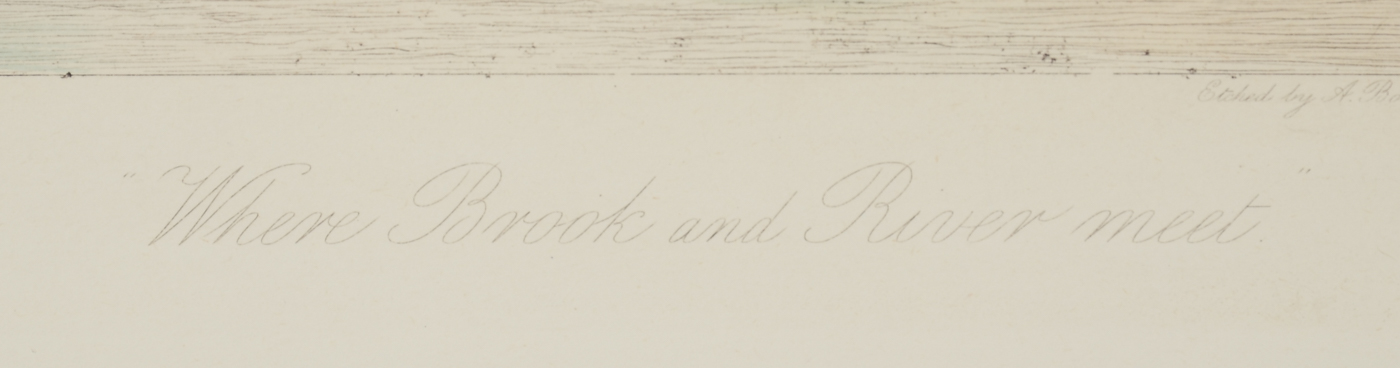 Etched by A. Bo
"Where Brook and River meet."